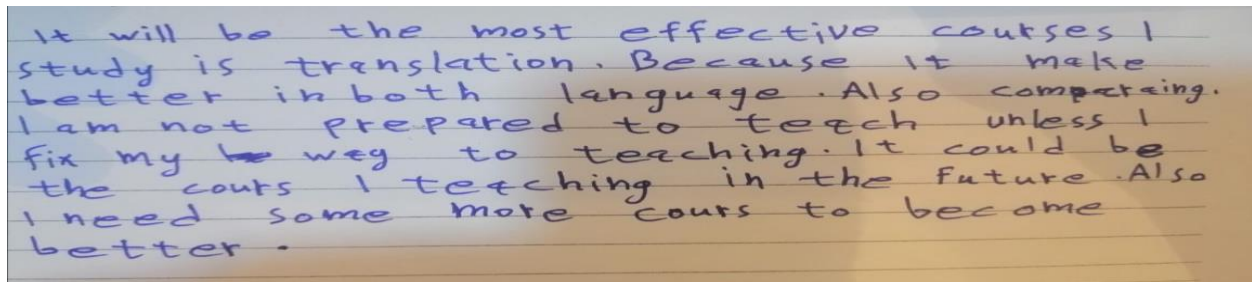 It will be the most effective courses I
study is translation. Because it make
better in both language. Also comparaing.
I am not prepared to teach unless I
fix my way to teaching. It could be
the cours I teaching in the future. Also
I need some more cours to become
better.